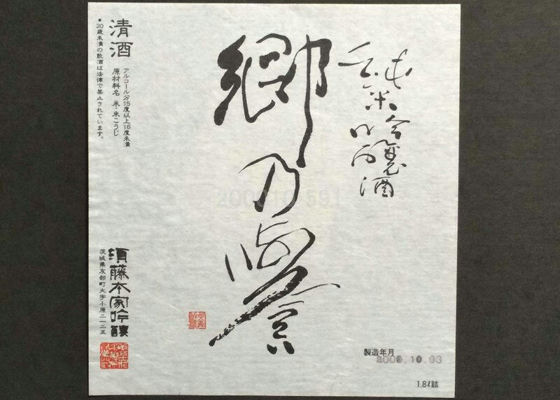 純米吟醸酒
郷乃誉
清酒
アルコール分15度以上16度未満
原材料名 米・米こうじ
●20歳未満の飲酒は法律で禁止されています。
須藤本家吟醸
茨城県友部町大字小原二一二五
製造年月
10.03
1.8ℓ詰